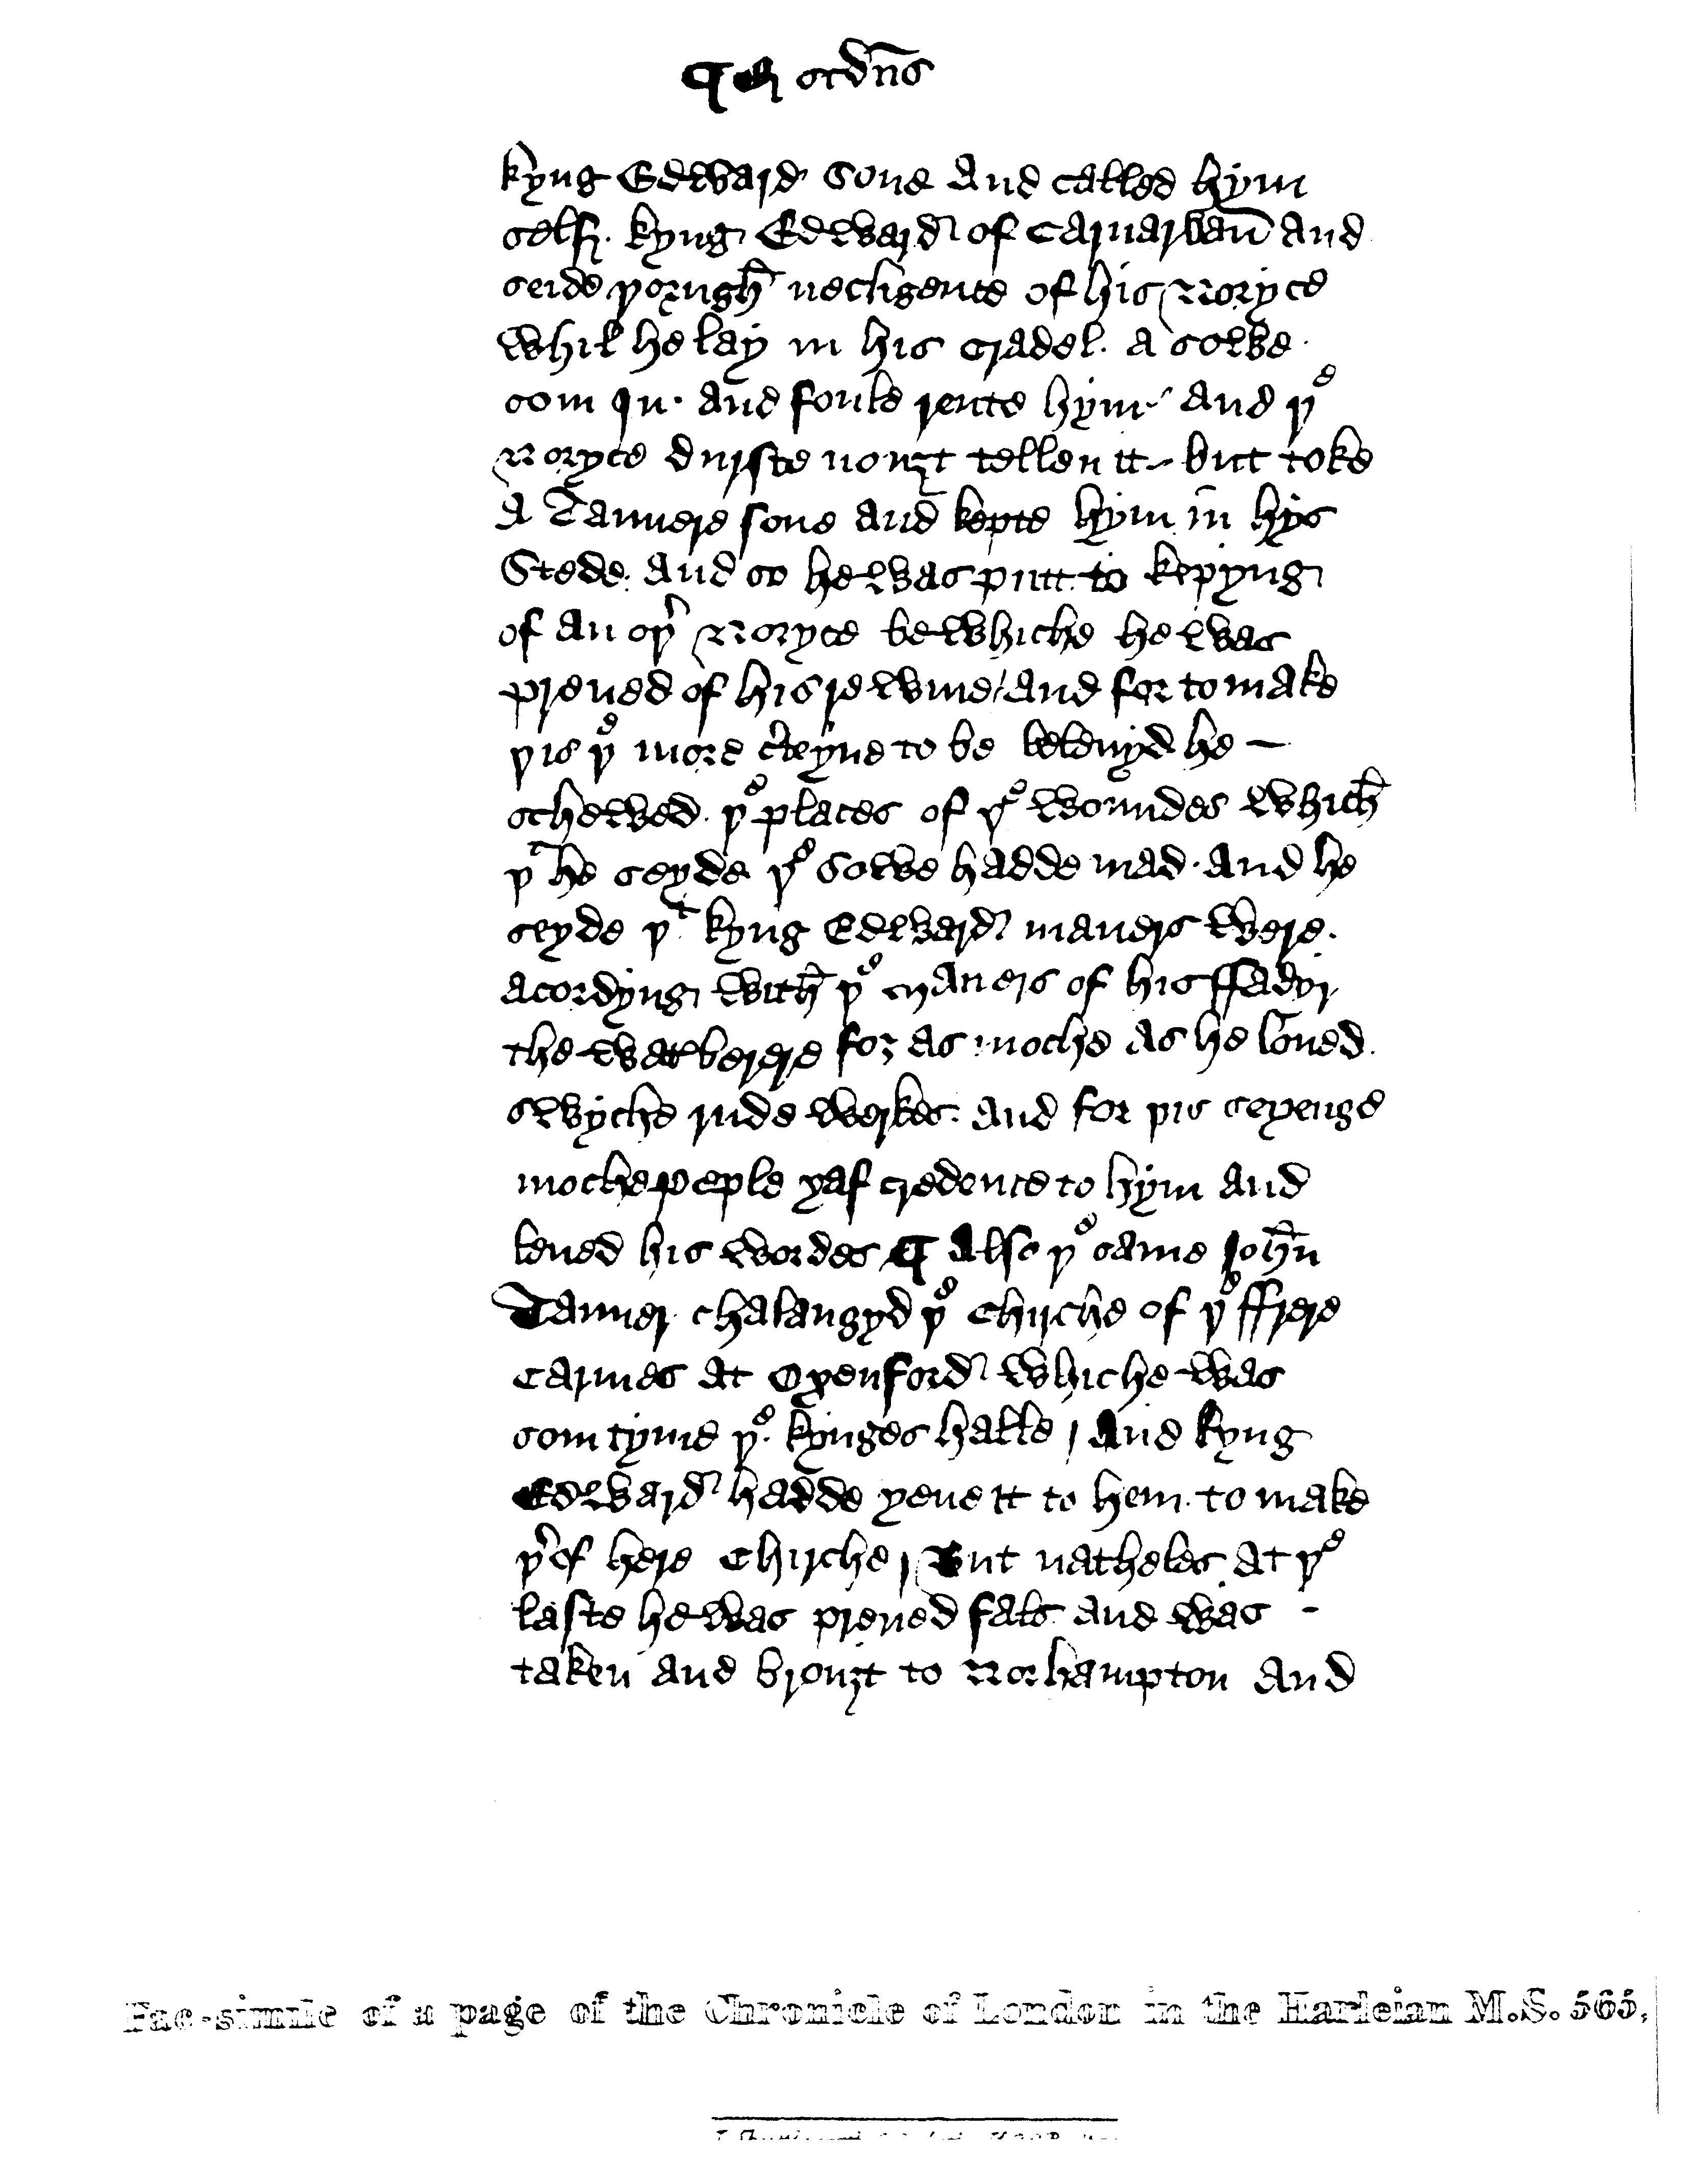 ¶ E sc̄dn̄s
kyng Edward sone And called hym
self. kyng Edward of Carnarvan̄ And
seide þorugh̄ necligence of his Noryce
Whil he lay in his cradel. A sowe.
com In. And foule rente hym And þͤ
Noryce durste nouȝt tellen it but toke
A Tannere sone And kepte hym in hys
Stede. And so he was putt to kepyng
of An oþ̓ Noryce be Whiche he was
preued of his rewme / And for to make
þis þͤ more c̓teyne to be beleuyd he –
schewed. þͤ places of þͤ Woundes Which̄
þͭ he seyde þͤ Sowe hadde mad. And he
seyde þͭ kyng Edward maners Were.
Acordyng With̄ þͤ maners of his ffadir
the Wat̓berere for As moche As he loued.
swyche rude Werkes. And for þis seyenge
moche peple yaf credence to hym And
leued his Wordes ¶ Also þͤ same Joh̄n
Tanner chalangyd þͤ Chirche of þͤ ffrere
Carmes At Oxenford Whiche Was
som tyme þͤ. kynges halle / And kyng
Edward hadde yeue it to hem. to make
þ̓of here Chirche / But natheles At þͤ
laste he Was preued fals And Was -
taken And brouȝt to Norhampton And
Fac-simile of a page of the Chronicle of London in the Harleian M.S. 565.